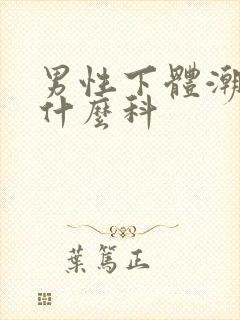 男性下體潮
什麼科
葉篤正